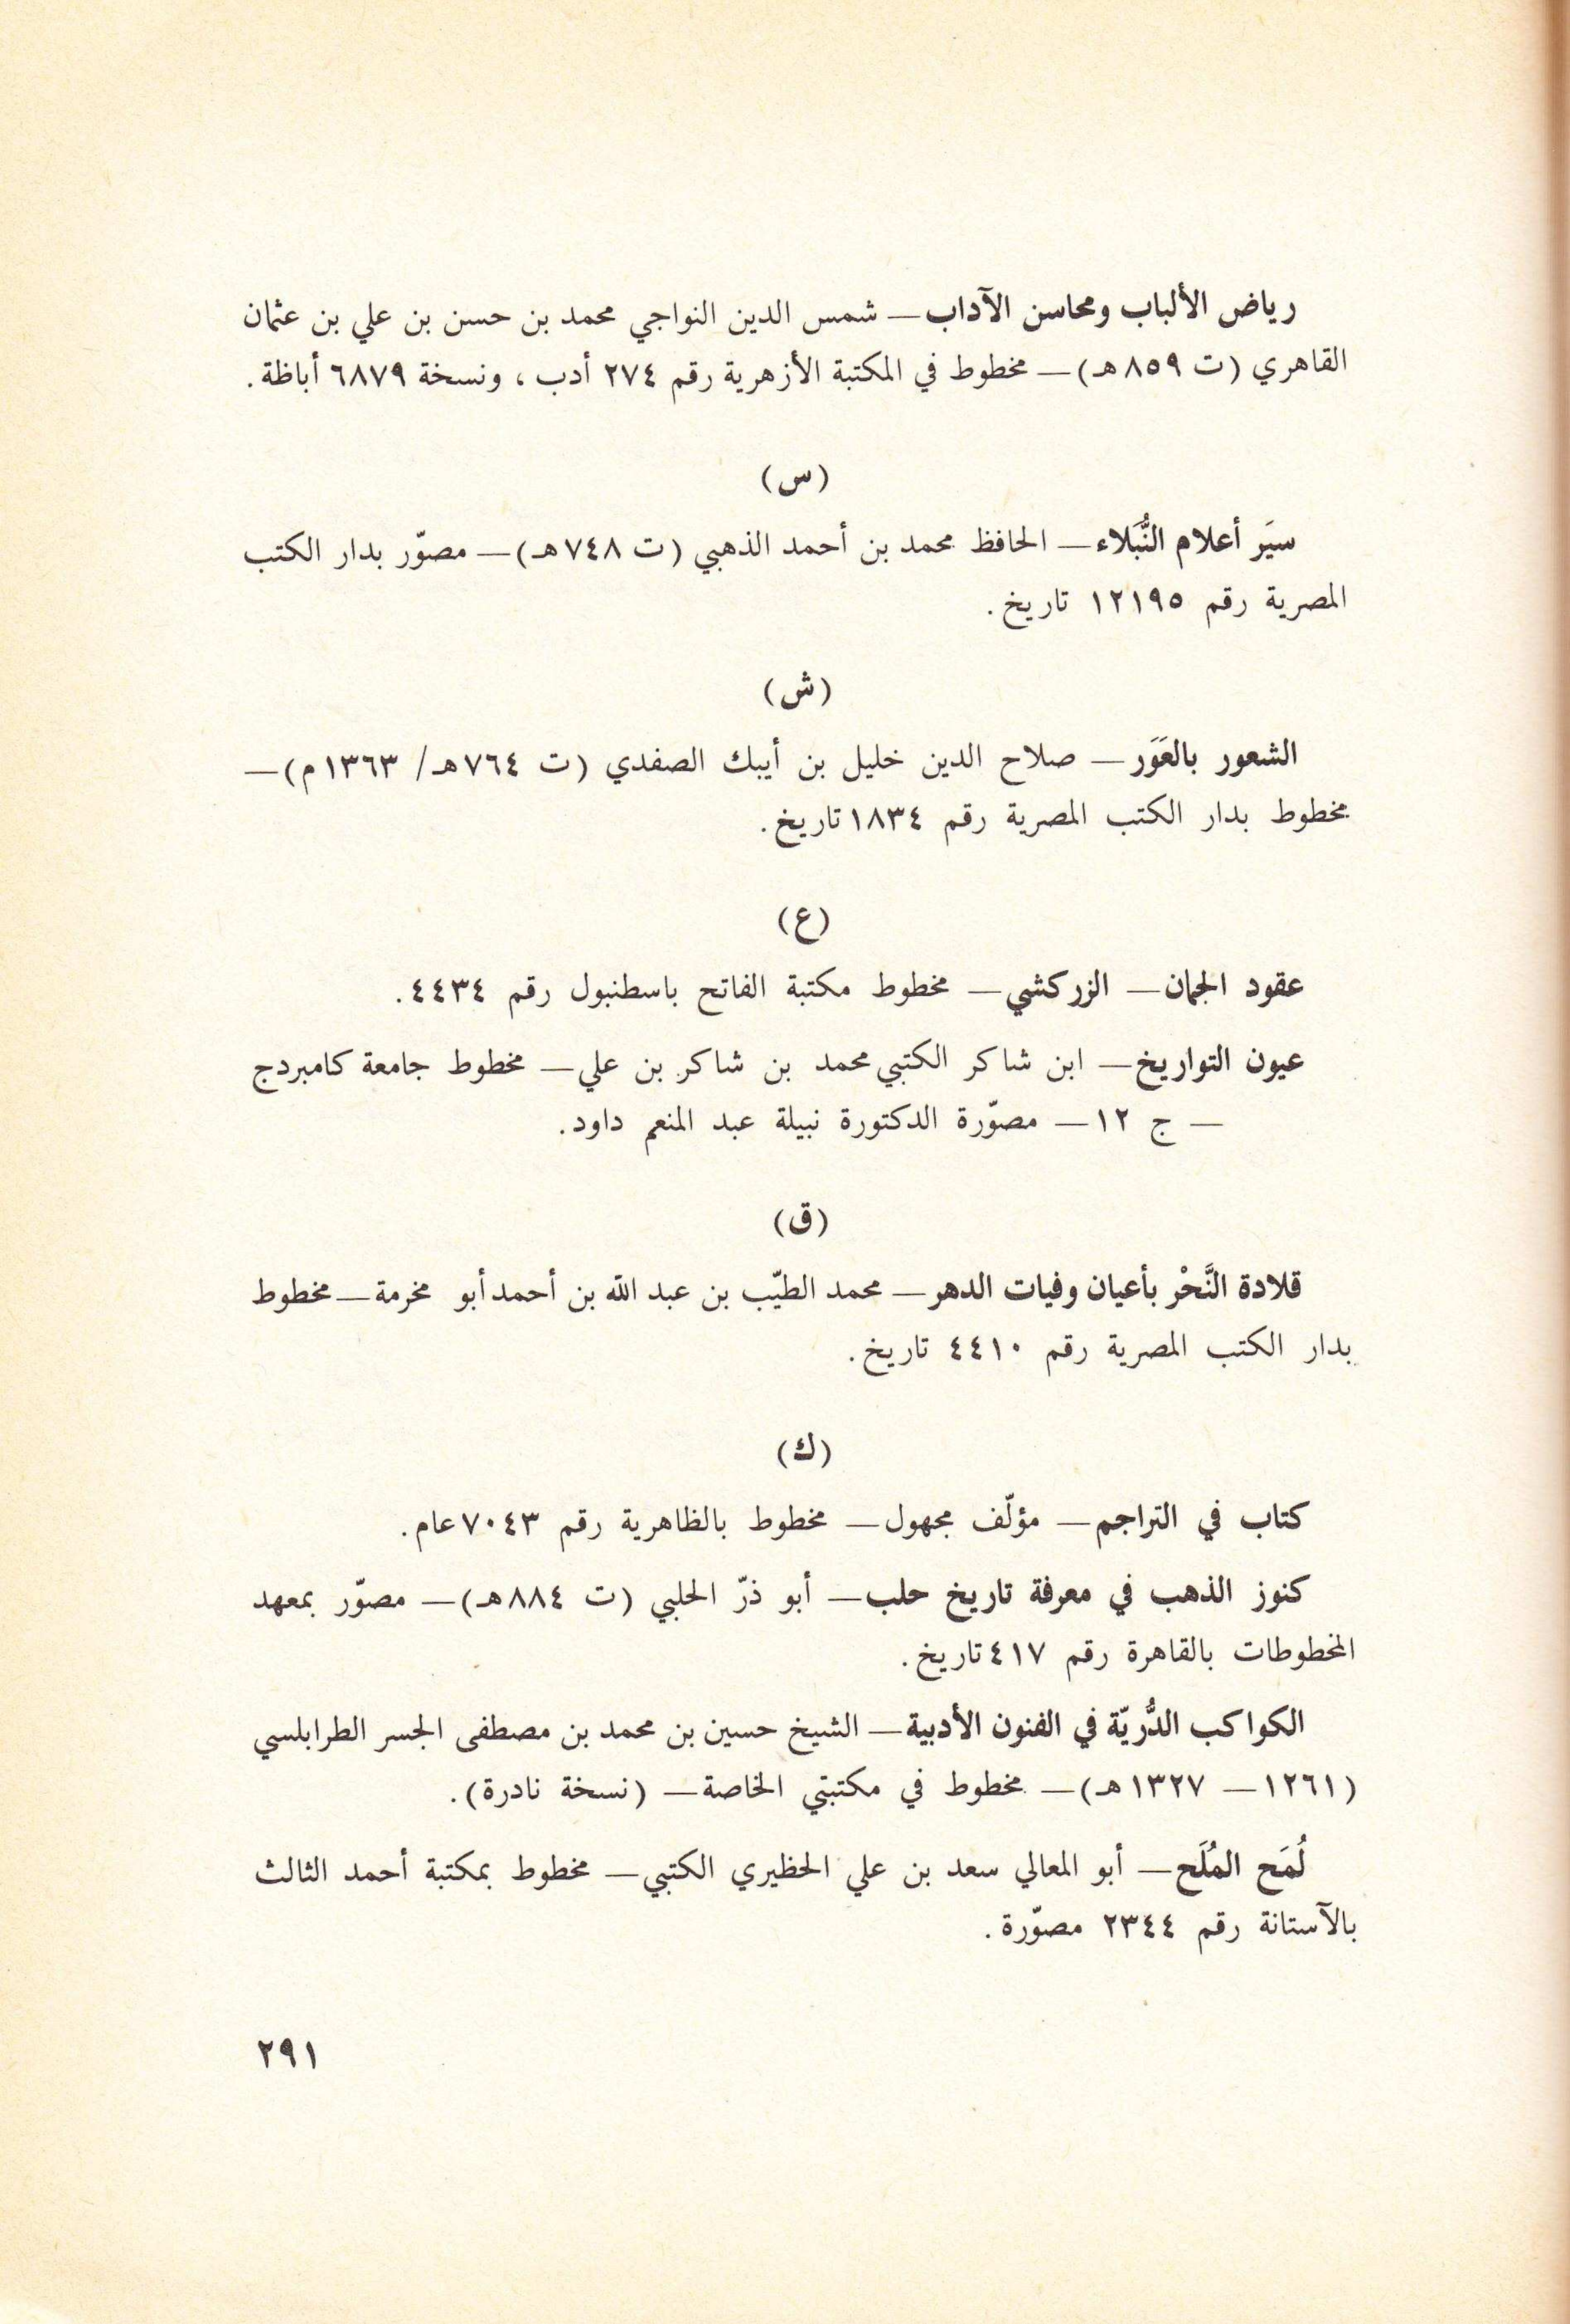 رياض الألباب ومحاسن الآداب — شمس الدين النواجي محمد بن حسن بن علي بن عثمان
القاهري (ت ٨٥٩هـ) — مخطوط في المكتبة الأزهرية رقم ٢٧٤ أدب ، ونسخة ٦٨٧٩ أباظة.
(س)
سيَر أعلام النُّبَلاء — الحافظ محمد بن أحمد الذهبي (ت ٧٤٨هـ) — مصوّر بدار الكتب
المصرية رقم ١٢١٩٥ تاريخ.
(ش)
الشعور بالعَوَر — صلاح الدين خليل بن أيبك الصفدي (ت ٧٦٤هـ/ ١٣٦٣م) —
مخطوط بدار الكتب المصرية رقم ١٨٣٤ تاريخ.
(ع)
عقود الجمان — الزركشي — مخطوط مكتبة الفاتح باسطنبول رقم ٤٤٣٤.
عيون التواريخ — ابن شاكر الكتبي محمد بن شاكر بن علي — مخطوط جامعة كامبردج
— ج ١٢ — مصوّرة الدكتورة نبيلة عبد المنعم داود.
(ق)
قلادة النَّحْر بأعيان وفيات الدهر — محمد الطيّب بن عبد الله بن أحمد أبو مخرمة — مخطوط
بدار الكتب المصرية رقم ٤٤١٠ تاريخ.
(ك)
كتاب في التراجم — مؤلّف مجهول — مخطوط بالظاهرية رقم ٧٠٤٣ عام.
كنوز الذهب في معرفة تاريخ حلب — أبو ذرّ الحلبي (ت ٨٨٤هـ) — مصوّر بمعهد
المخطوطات بالقاهرة رقم ٤١٧ تاريخ.
الكواكب الدُّريّة في الفنون الأدبية — الشيخ حسين بن محمد بن مصطفى الجسر الطرابلسي
(١٢٦١ — ١٣٢٧هـ) — مخطوط في مكتبتي الخاصة — (نسخة نادرة).
لُمَح المُلَح — أبو المعالي سعد بن علي الحظيري الكتبي — مخطوط بمكتبة أحمد الثالث
بالآستانة رقم ٢٣٤٤ مصوّرة.
٢٩١